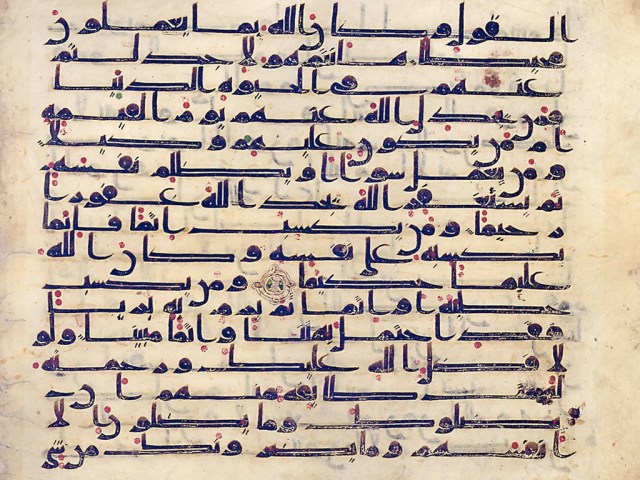 القول وكان الله بما يعملون
محيطا هانتم هولا جدلتم
عنهم في الحيوه الدنيا
فمن يجدل الله عنهم يوم القيمه
ام من يكون عليهم وكيلا
ومن يعمل سوا او يظلم نفسه
ثم يستغفر الله يجد الله غفورا
رحيما ومن يكسب اثما فانما
يكسبه على نفسه وكان الله
عليما حكيما ومن يكسب
خطيه او اثما ثم يرم به بريا
فقد احتمل بهتنا واثما مبينا ولو
لا فضل الله عليك ورحمته
لهمت طايفه منهم ان
يضلوك وما يضلون الا
انفسهم وما يضرونك من شي